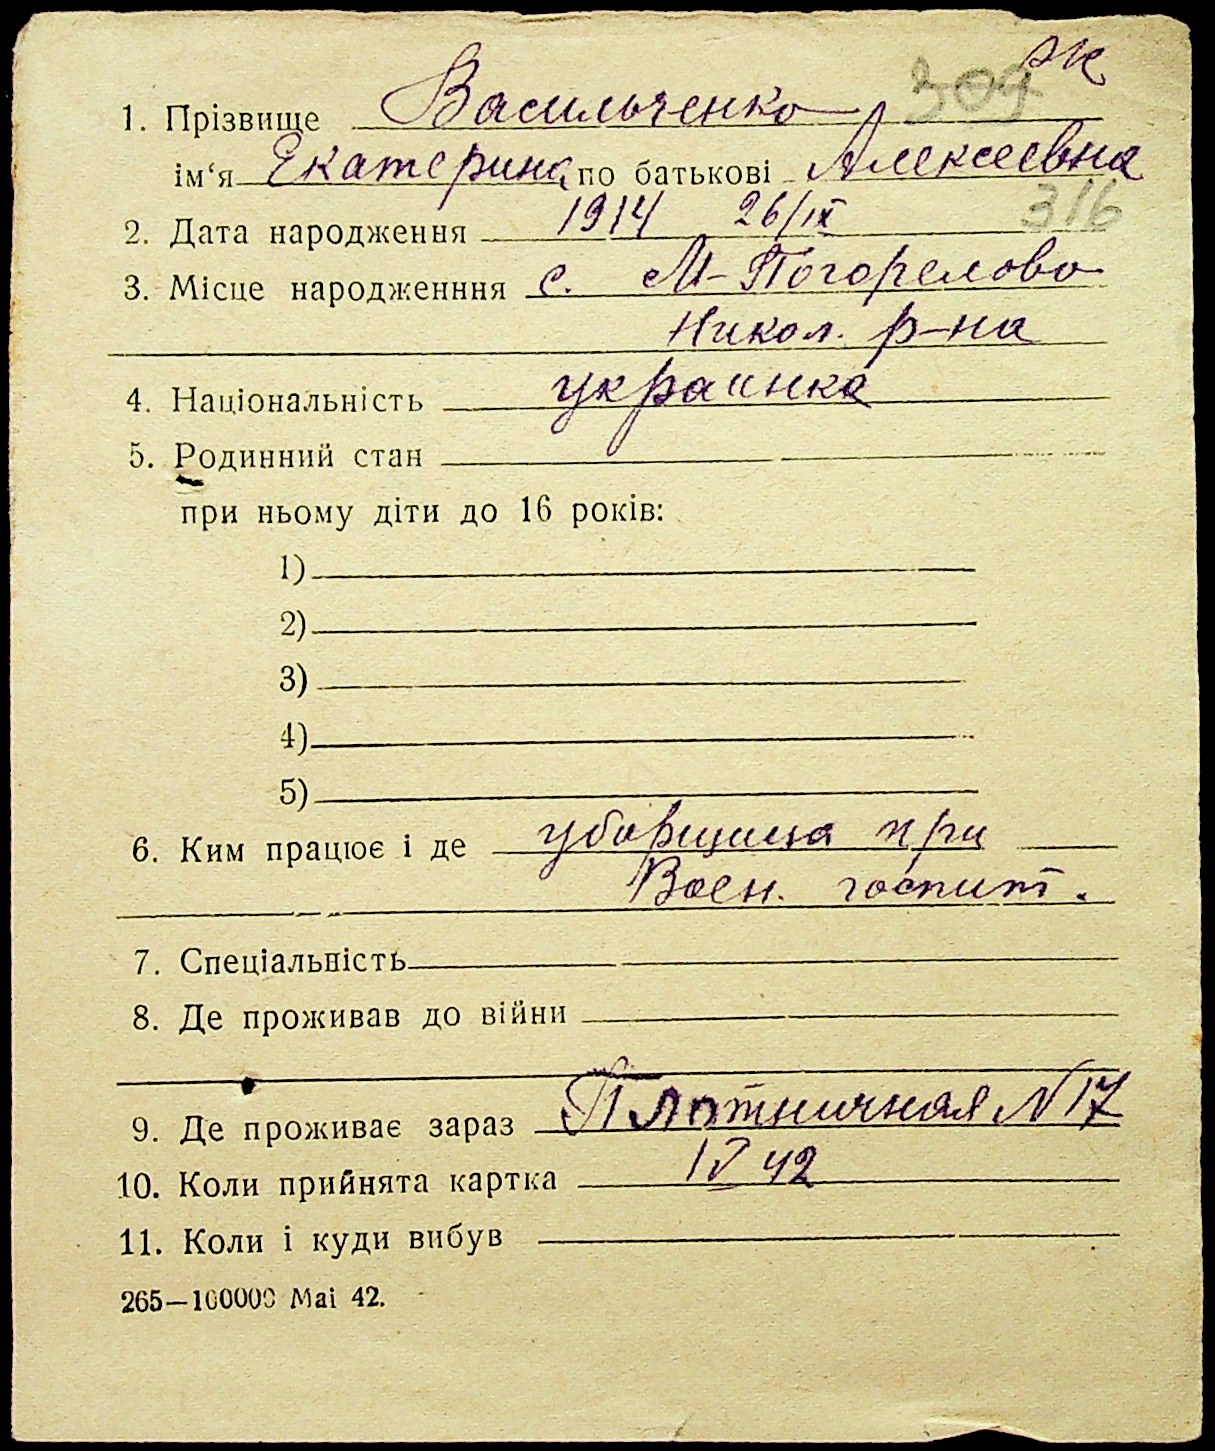 ж
1. Прізвище Васильченко 309
ім‘я Екатерина по батькові Алексеевна
2. Дата народження 1914 26/IX 316
3. Місце народженння с. М-Погорелово
Никол. р-на
4. Національність украинка
5. Родинний стан
при ньому діти до 16 років:
1)
2)
3)
4)
5)
6. Ким працює і де уборщица при
Воен. госпит.
7. Спеціальність
8. Де проживав до війни
9. Де проживає зараз Плотничная N 17
10. Коли прийнята картка IV 42
11. Коли і куди вибув
265—100000 Mai 42.